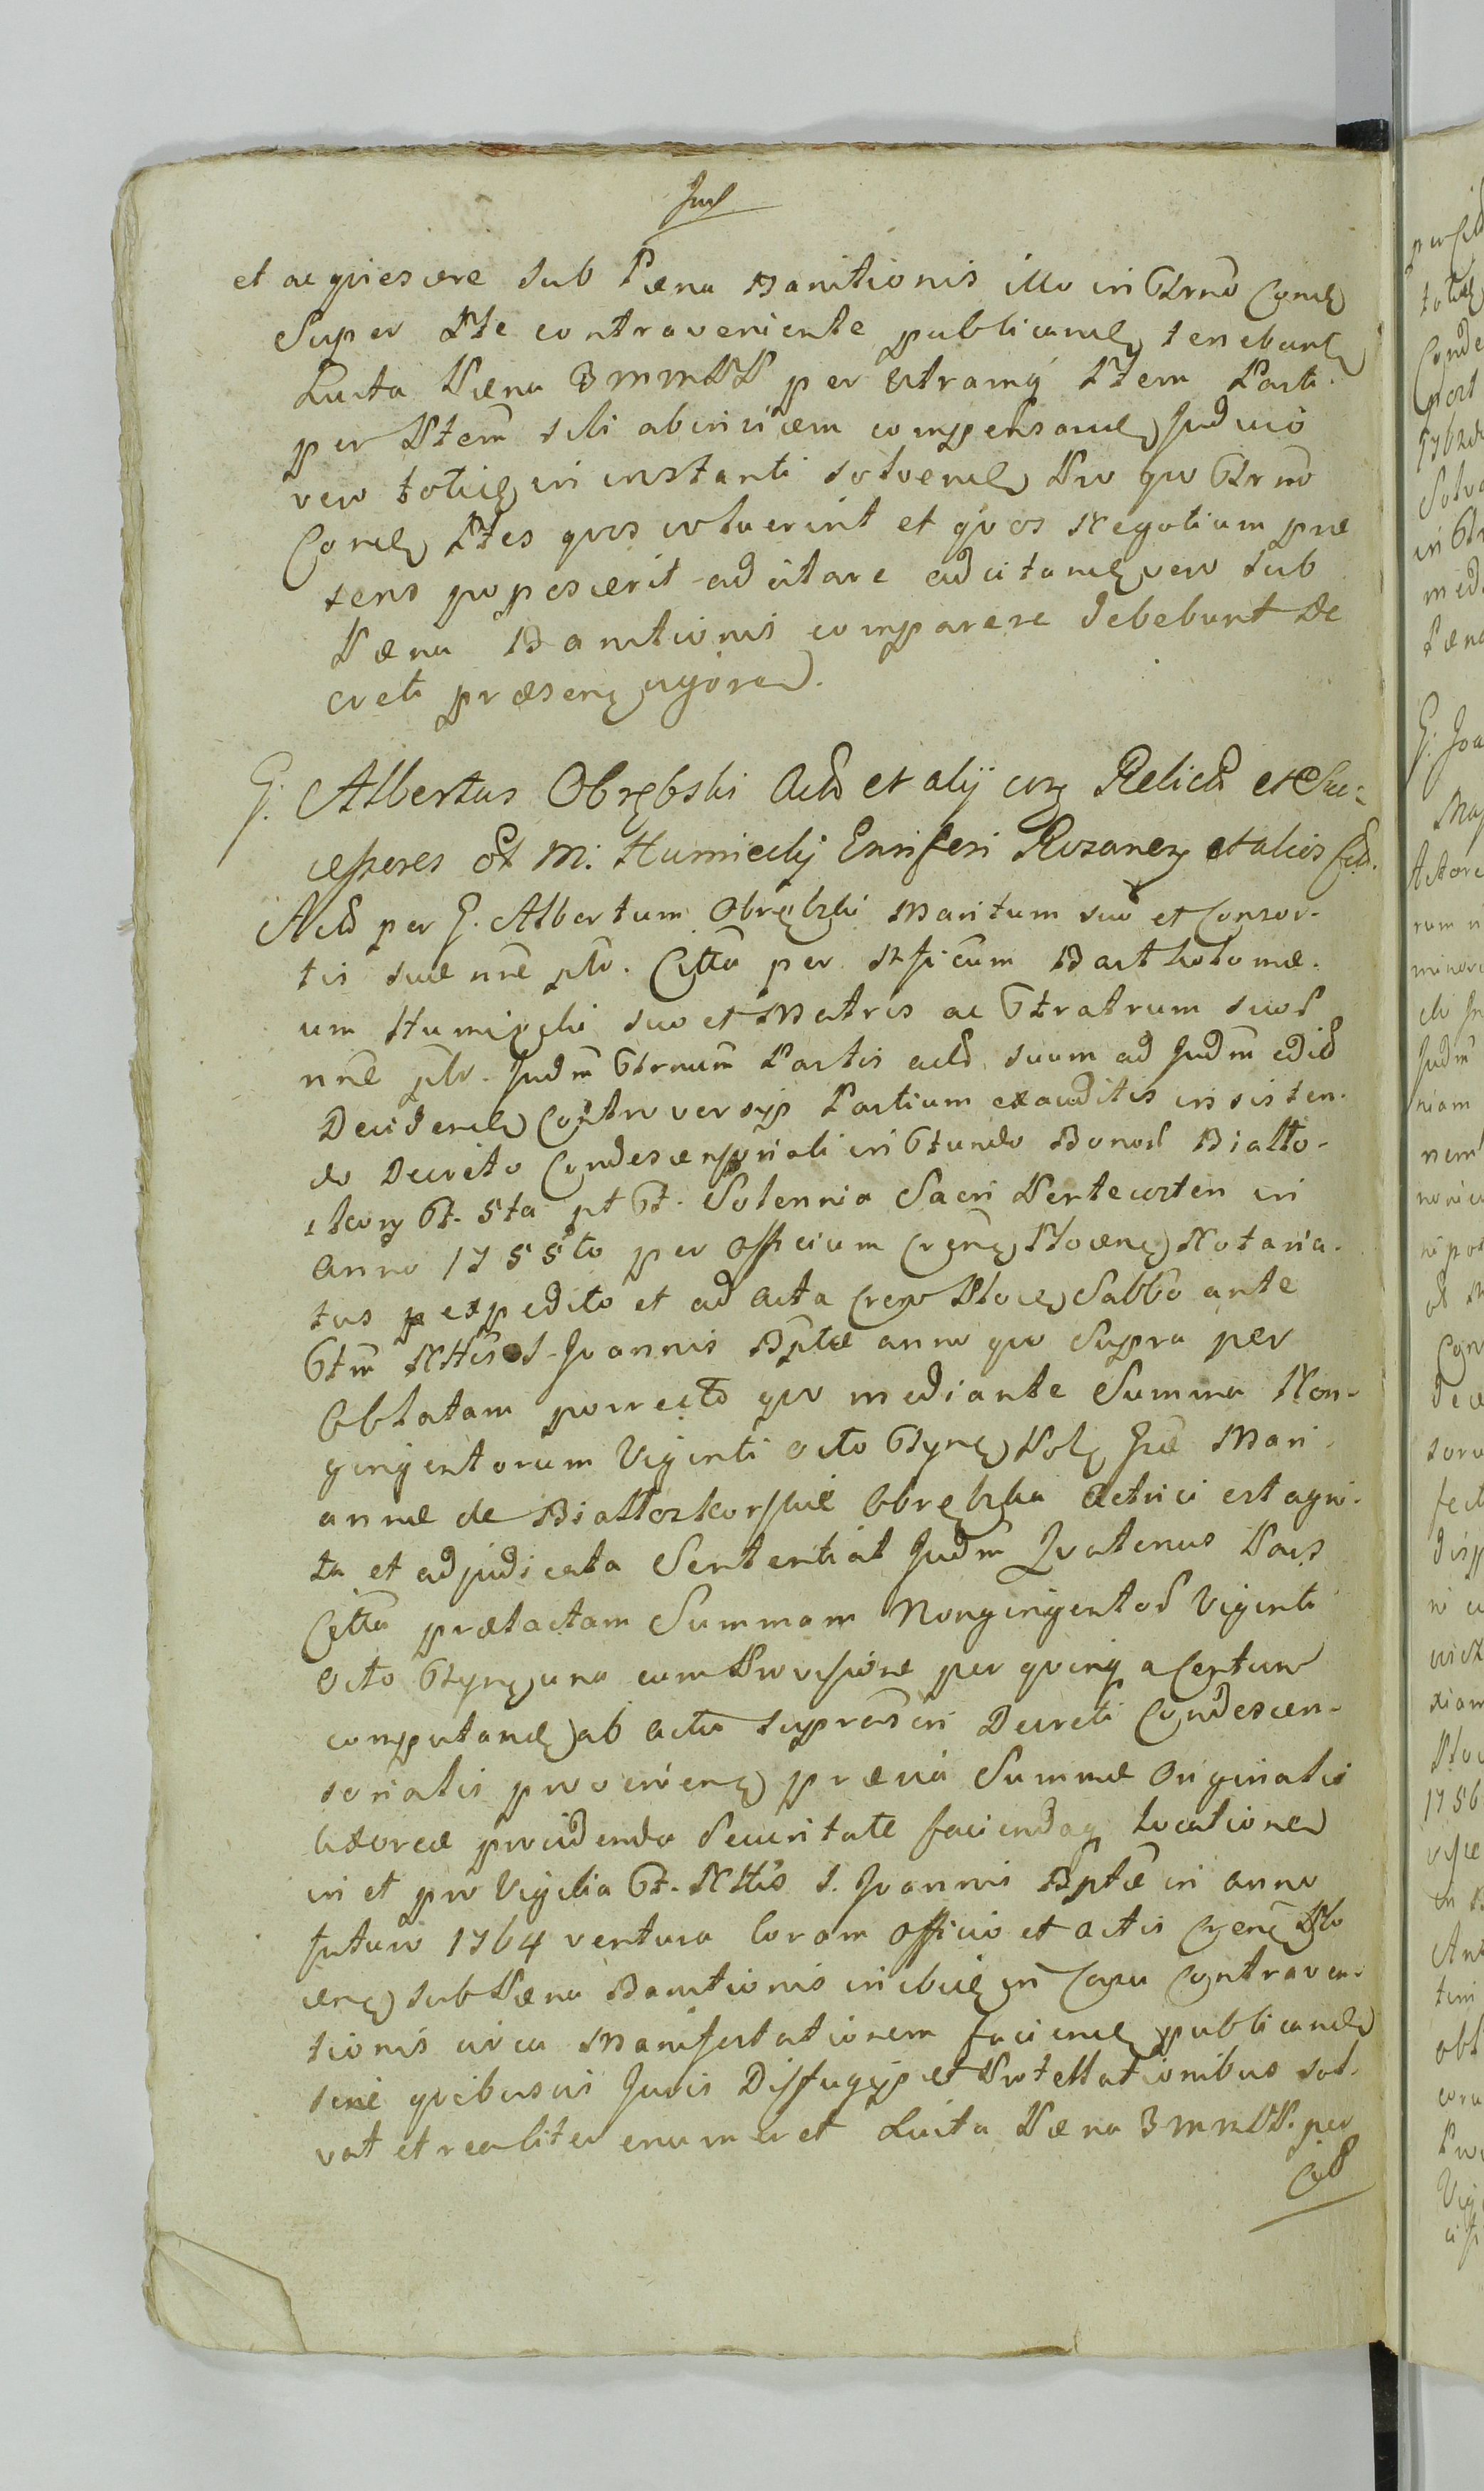 Jud
et acquiescere sub Pæna Banitionis illo in Ttrno Cond
Super Pte contraveniente publicand tenebunt
Luita Pæna 3 m m PP per utramq Ptem Parti
per Ptem sibi abinvicem compensand Judicio
vero toties in instanti solvend Pro quo Ttrno
Cond Ptes quos voluerint et quos Negotium præ
sens poposcerit adcitare adcitand vero sub
Pæna Banitionis comparere debebunt De
creti præsen vigore
G. Albertus Obrębski Act et alij cız Relict et Suc=
cessores Gt M. Humiecky Ensiferi Rozanen et alios Citt.
Act per G. Albertum Obrębski Maritum suo et Consor-
tis suæ nne ptr. Citta per Mficum Bartholomæ-
um Humięcki suo et Matris ac Ftratrum suor
nne ptr. Judm Ttrnum Partis act suum ad Judm edid
Decidend Controversijs Partium exauditis insisten-
do Decreto Condescensoriali in Ftundo Bonor Białło-
skory Ft. 5ta pt Ft. Solennia Sacri Pentecosten in
Anno 1755to per Officium Cren Plocen Notaria-
tus expedito et ad Acta Cren Ploc Sabbo ante
Ftm Nttis S. Joannis Bptæ anno quo supra per
Oblatam porrecto quo mediante Summa Non-
gingentorum Viginti octo Ftyn Pol Gsæ Mari-
annæ de Białłoskorskie Obrębska Actrici est agni-
ta et adjudicata Sententiat Judm Quatenus Pars
Citta prætactam Summam Nongingentor Viginti
Octo Ftyn una cum Provisione per quinq a Centum
computand ab actu suprascri Decreti Condescen-
sorialis provenien prævia Summæ Originalis
Uxoreæ providenda Securitate faciendaq Locatione
in et pro Vigilia Ft. Nttis S. Joannis Bptæ in anno
futuro 1764 ventura Coram Officio et Actis Cren Plo
cen sub Pæna Banitionis inibiq in Casu Contraven-
tionis circa Manifestationem faciend publicand
sine quibusvis Juris Diffugijs et Protestationibus sol-
vat et realiter enumeret Luita Pæna 3 m m PP. per
Citt